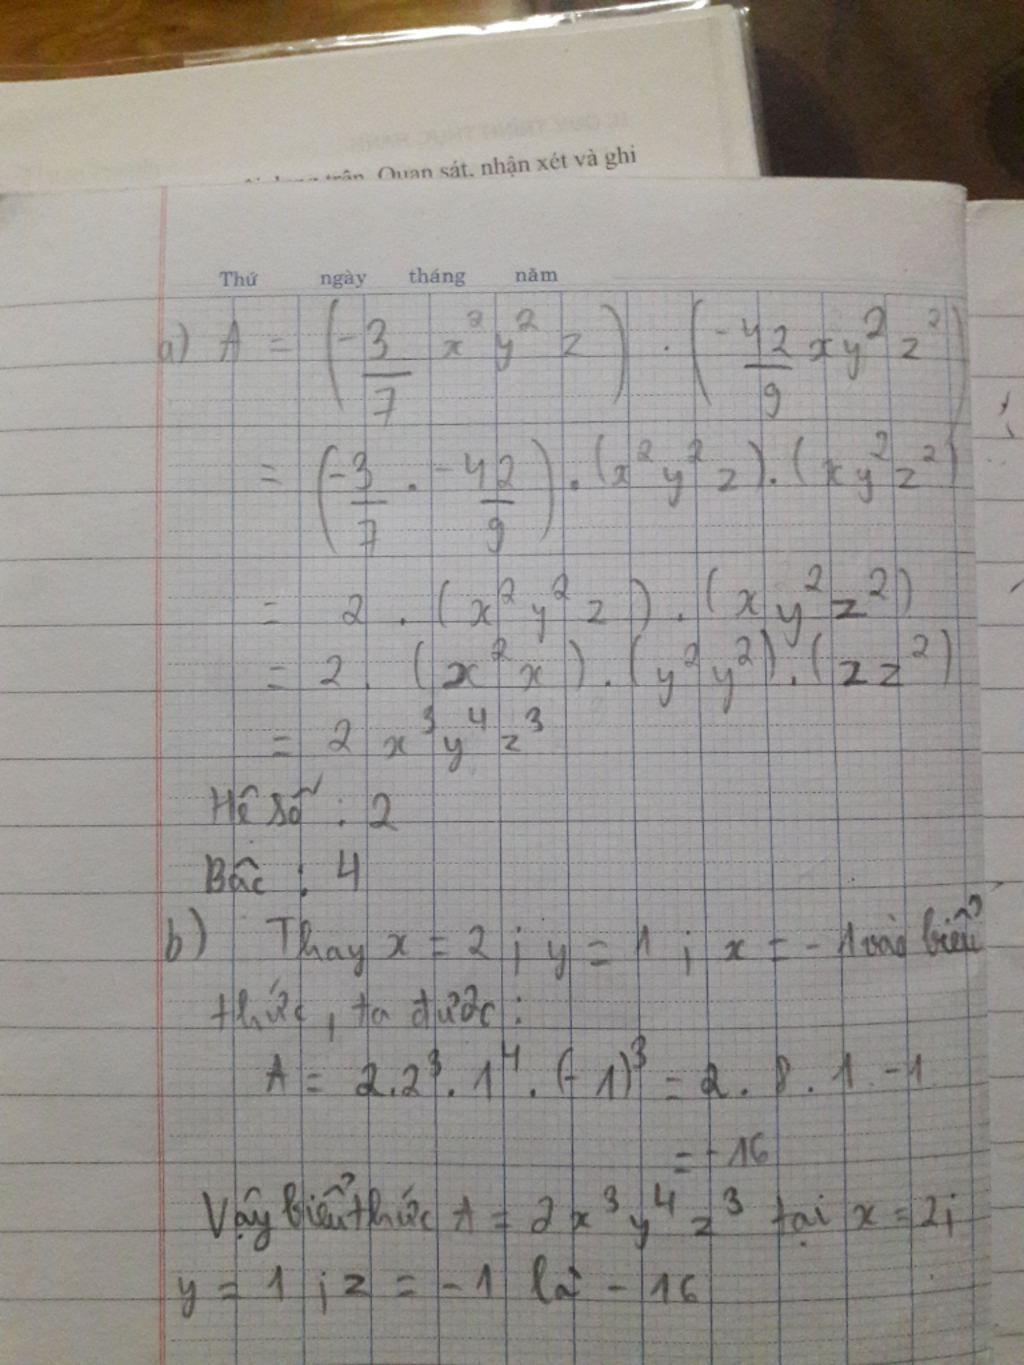 Quan sát, nhận xét và ghi
Thứ ngày tháng năm
a) A = (-3/7 x² y² z) . (-42/9 xy² z²)
= (-3/7 . -42/9) . (x² y² z) . (x y² z²)
= 2 . (x² y² z) . (x y² z²)
= 2 . (x² x) . (y² y²) . (z z²)
= 2 x³ y⁴ z³
Hệ số : 2
Bậc : 4
b) Thay x = 2 ; y = 1 ; x = -1 vào biểu
thức, ta được :
A = 2.2³ . 1⁴ . (-1)³ = 2 . 8 . 1 . -1
= -16
Vậy biểu thức A = 2x³ y⁴ z³ tại x = 2;
y = 1 ; z = -1 là -16